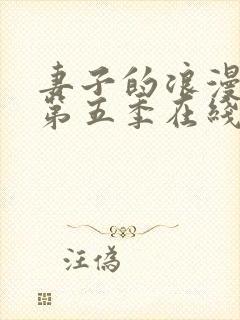 妻子的浪漫
第五季在线
汪伪